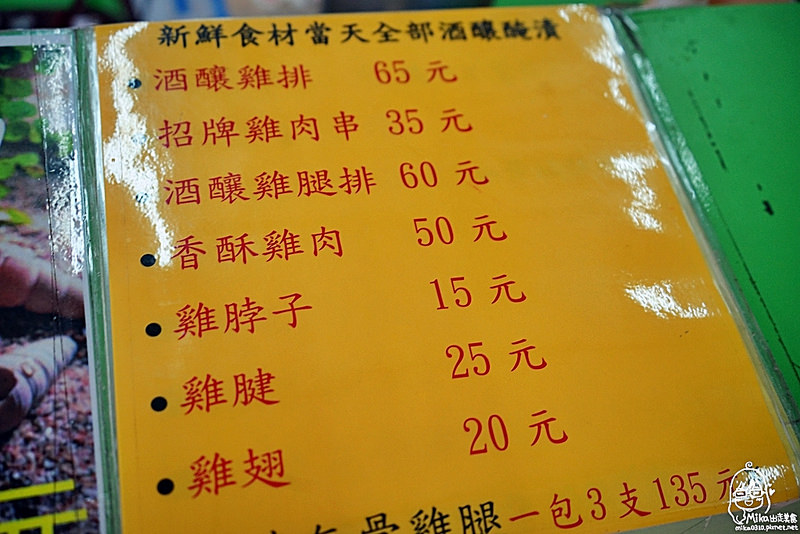 新鮮食材當天全部酒釀醃漬
酒釀雞排 65 元
招牌雞肉串 35 元
酒釀雞腿排 60 元
香酥雞肉 50 元
雞脖子 15 元
雞腱 25 元
雞翅 20 元
骨雞腿一包3支135元
Mika出走美食
mika0310.pixnet.net